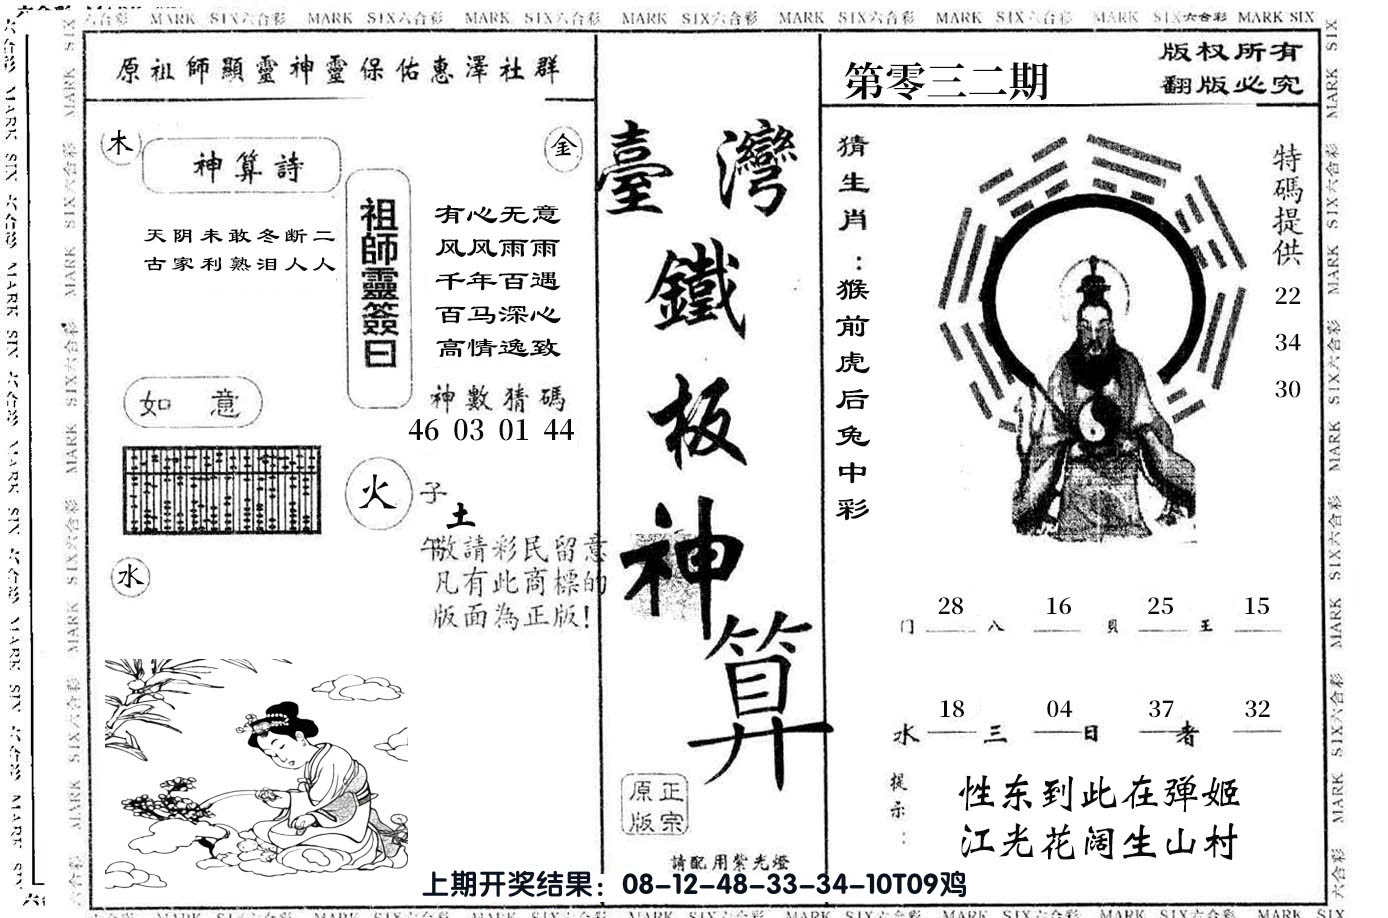 MARK SIX六合彩 MARK SIX六合彩 MARK SIX六合彩 MARK SIX六合彩 MARK SIX六合彩 MARK SIX六合彩 MARK SIX六合彩 MARK SIX
原祖師顯靈神靈保佑惠澤社群
木
神算詩
金
天阴未敢冬断二
古家利熟泪人人
祖師靈簽曰
有心无意
风风雨雨
千年百遇
百马深心
高情逸致
神數猜碼
46 03 01 44
如意
火
子
土
午
敬請彩民留意
凡有此商標的
版面為正版!
水
臺灣
鐵
板
神
算
正宗
原版
請配用紫光燈
第零三二期
版权所有
翻版必究
猜生肖：猴前虎后兔中彩
特碼提供
22
34
30
28 16 25 15
门 八 貝 王
18 04 37 32
水 三 日 者
提示：
性东到此在弹姬
江光花阔生山村
上期开奖结果：08-12-48-33-34-10T09鸡